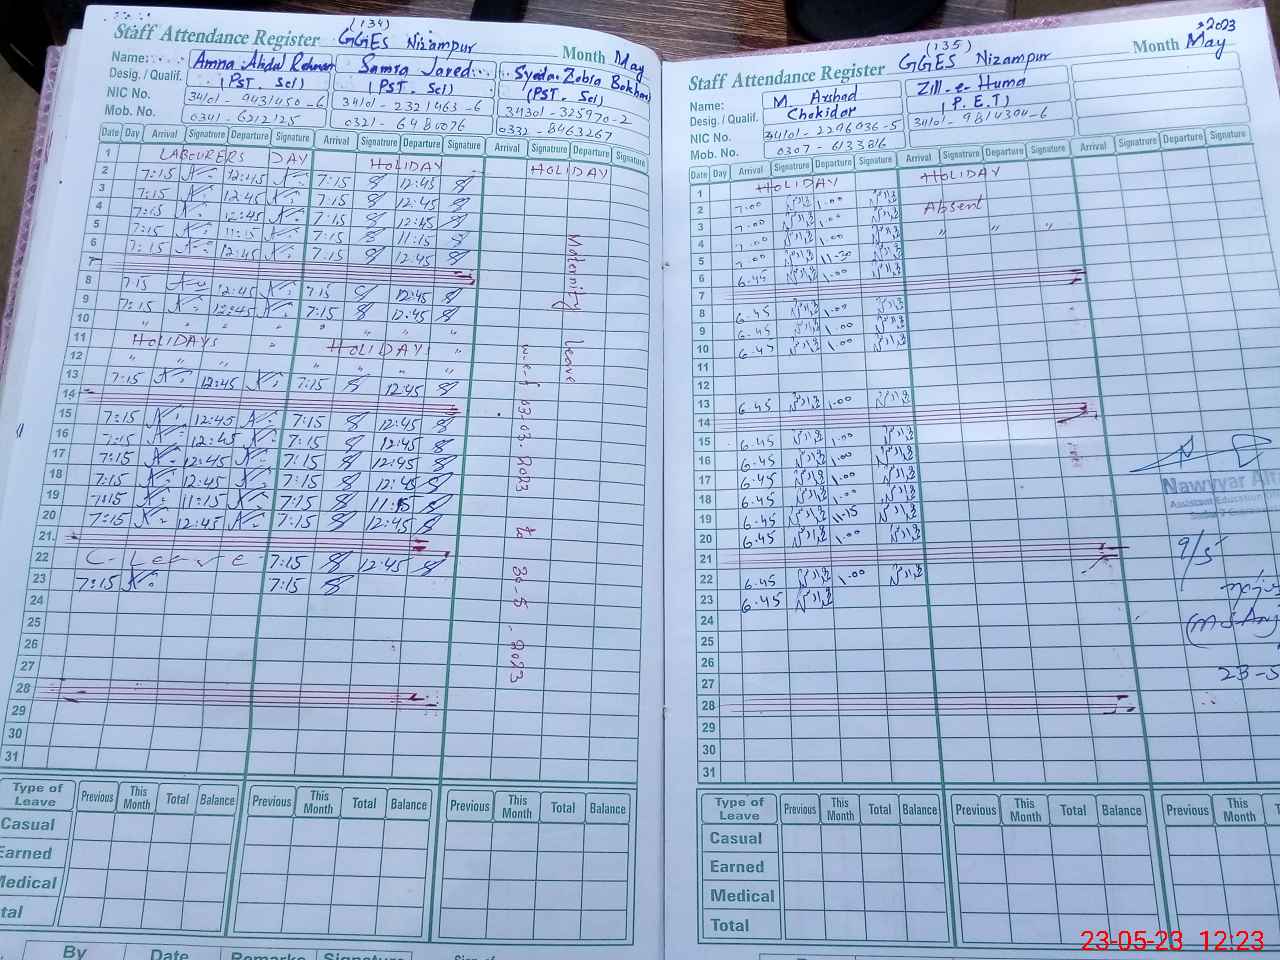 (134)
Staff Attendance Register GGES Nizampur
Month May
Name: Amna Abdal Rehman Samra Javed Syeda Zobia Bokhari
Desig. / Qualif. (PST. Sci) (PST. Sci) (PST. Sci)
NIC No. 34101-9431450-6 34101-2321463-6 34301-325970-2
Mob. No. 0341-6212125 0321-6480076 0332-8463267
Date Day Arrival Signature Departure Signature Arrival Signature Departure Signature Arrival Signature Departure Signature
1 LABOURERS DAY HOLIDAY HOLIDAY
2 7:15 12:45 7:15 12:45
3 7:15 12:45 7:15 12:45
4 7:15 12:45 7:15 12:45
5 7:15 11:15 7:15 11:15
6 7:15 12:45 7:15 12:45
7
8 7:15 12:45 7:15 12:45
9 7:15 12:45 7:15 12:45
10 " " " " " " " "
11 HOLIDAYS " HOLIDAY "
12 " " " " " " " "
13 7:15 12:45 7:15 12:45
14
15 7:15 12:45 7:15 12:45
16 7:15 12:45 7:15 12:45
17 7:15 12:45 7:15 12:45
18 7:15 12:45 7:15 12:45
19 7:15 11:15 7:15 11:15
20 7:15 12:45 7:15 12:45
21
22 C-Leave 7:15 12:45
23 7:15 7:15
24
25
26
27
28
29
30
31
Maternity leave
w.e.f 03.03.2023 to 30-5.2023
Type of Leave Previous This Month Total Balance Previous This Month Total Balance Previous This Month Total Balance
Casual
Earned
Medical
tal
By Date Remarks Signature Sign of
(135) 2023
Staff Attendance Register GGES Nizampur Month May
Name: M. Arshad Zill-e-Huma
Desig. / Qualif. Chokidar (P.E.T)
NIC No. 34101-2296036-5 34101-9814304-6
Mob. No. 0307-6133816
Date Day Arrival Signature Departure Signature Arrival Signature Departure Signature Arrival Signature Departure Signature
1 HOLIDAY HOLIDAY
2 7.00 1.00 Absent
3 7.00 1.00 " " "
4 7.00 1.00
5 7.00 11.30
6 6.45 1.00
7
8 6.45 1.00
9 6.45 1.00
10 6.45 1.00
11
12
13 6.45 1.00
14
15 6.45 1.00
16 6.45 1.00
17 6.45 1.00
18 6.45 1.00
19 6.45 11.15
20 6.45 1.00
21
22 6.45 1.00
23 6.45
24
25
26
27
28
29
30
31
Nawyyar
Assistant Education
9/5
23-5
Type of Leave Previous This Month Total Balance Previous This Month Total Balance Previous This Month
Casual
Earned
Medical
Total
23-05-23 12:23